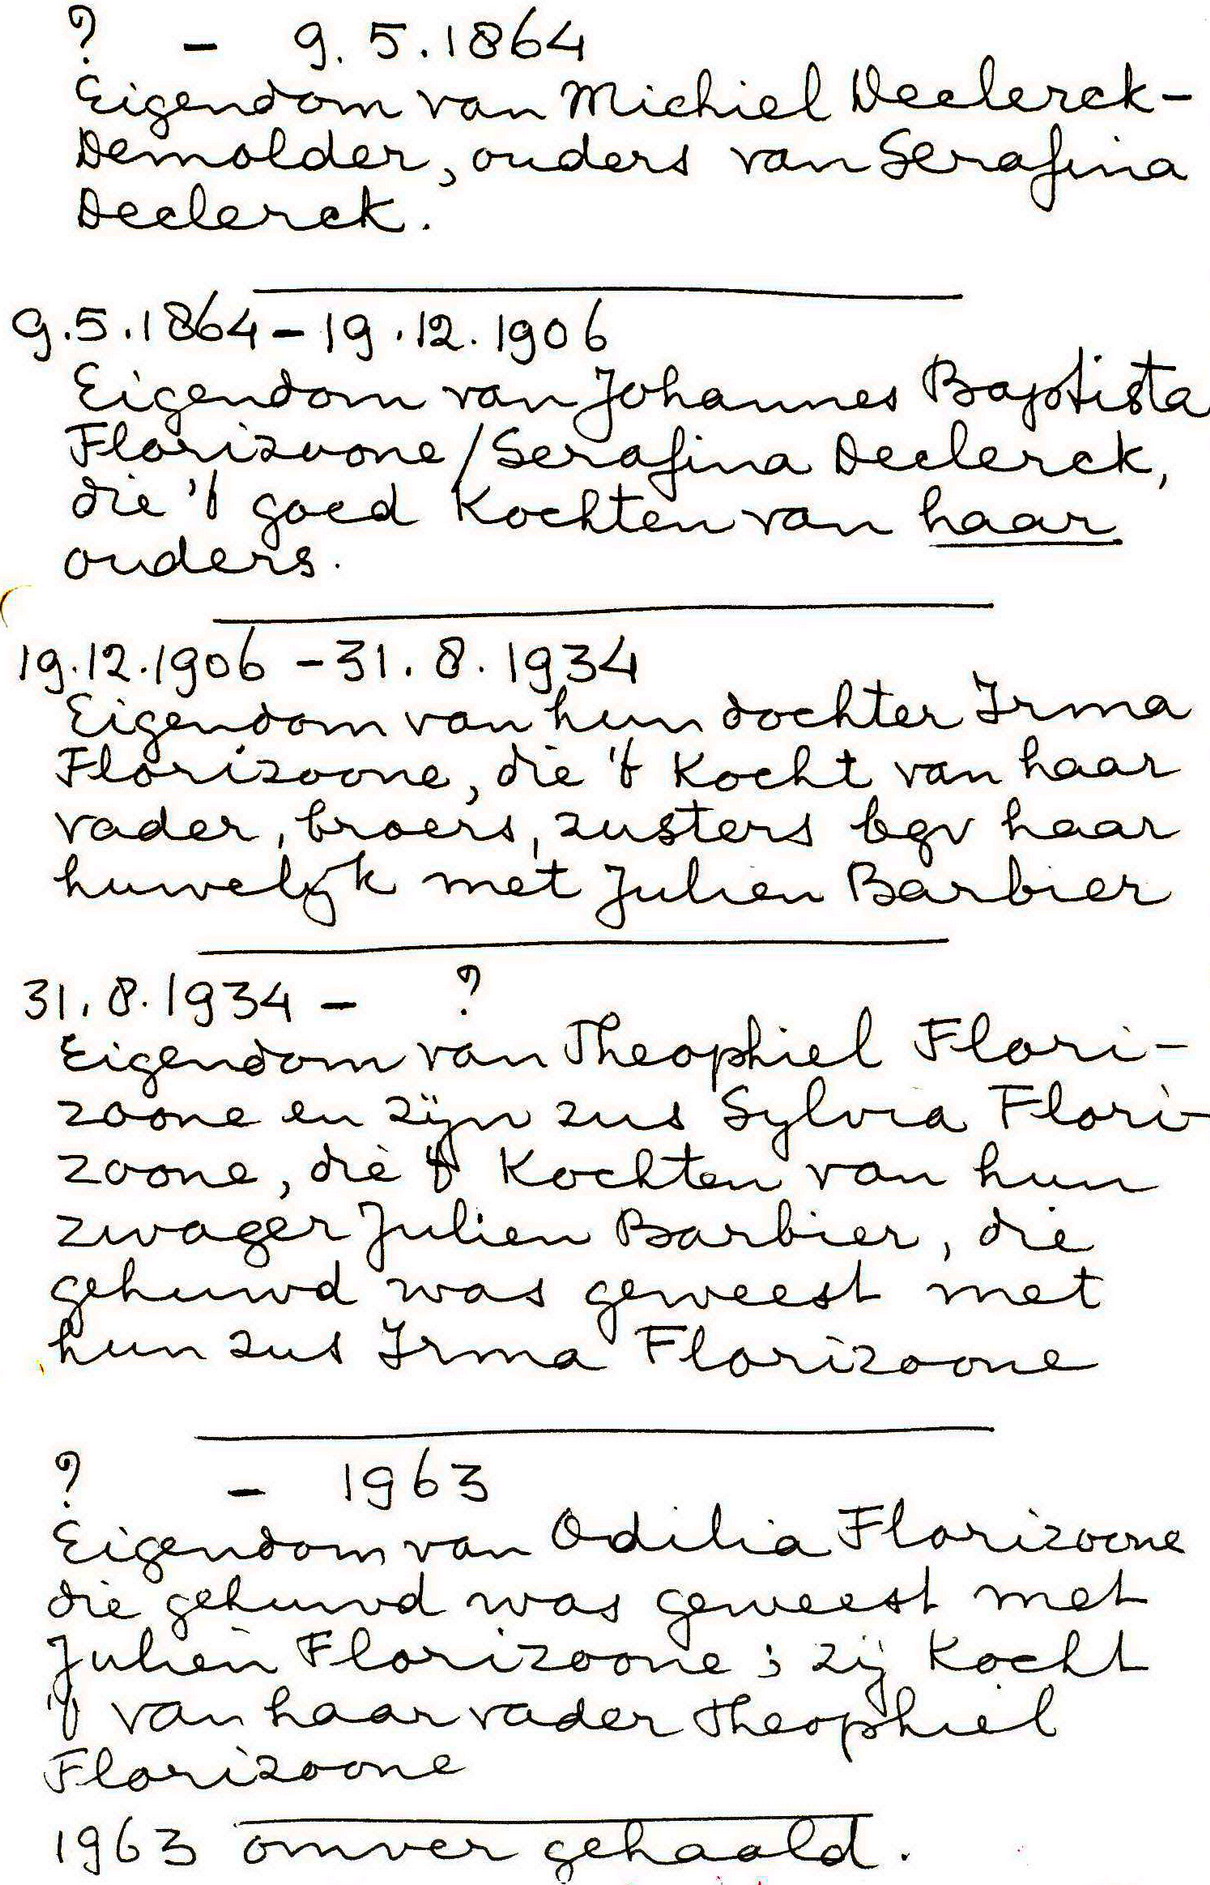 ? - 9.5.1864
Eigendom van Michiel Declerck-
Demolder, ouders van Serafina
Declerck.
9.5.1864 - 19.12.1906
Eigendom van Johannes Baptista
Florizoone/Serafina Declerck,
die 't goed kochten van haar
ouders.
19.12.1906 - 31.8.1934
Eigendom van hun dochter Irma
Florizoone, die 't kocht van haar
vader, broers, zusters bgv haar
huwelijk met Julien Barbier
31.8.1934 - ?
Eigendom van Theophiel Flori-
zoone en zijn zus Sylvia Flori-
zoone, die 't kochten van hun
zwager Julien Barbier, die
gehuwd was geweest met
hun zus Irma Florizoone
? - 1963
Eigendom van Odilia Florizoone
die gehuwd was geweest met
Julien Florizoone ; zij kocht
't van haar vader Theophiel
Florizoone
1963 omver gehaald.